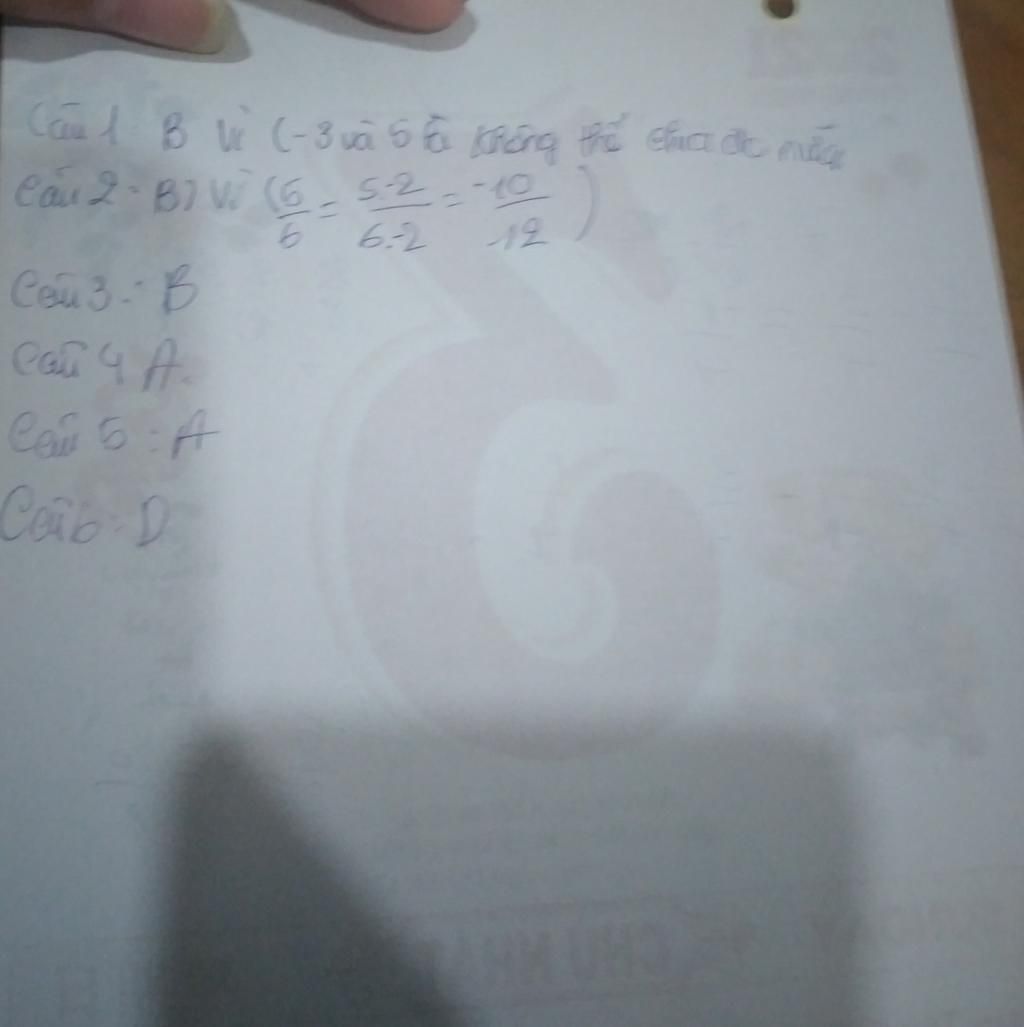 Câu 1 B Vì (-3 và 5 là không thể chia đc nữa
Câu 2: B) Vì (5/6 = 5.-2/6.-2 = -10/-12)
Câu 3: B
Câu 4 A.
Câu 5: A
Câu 6: D